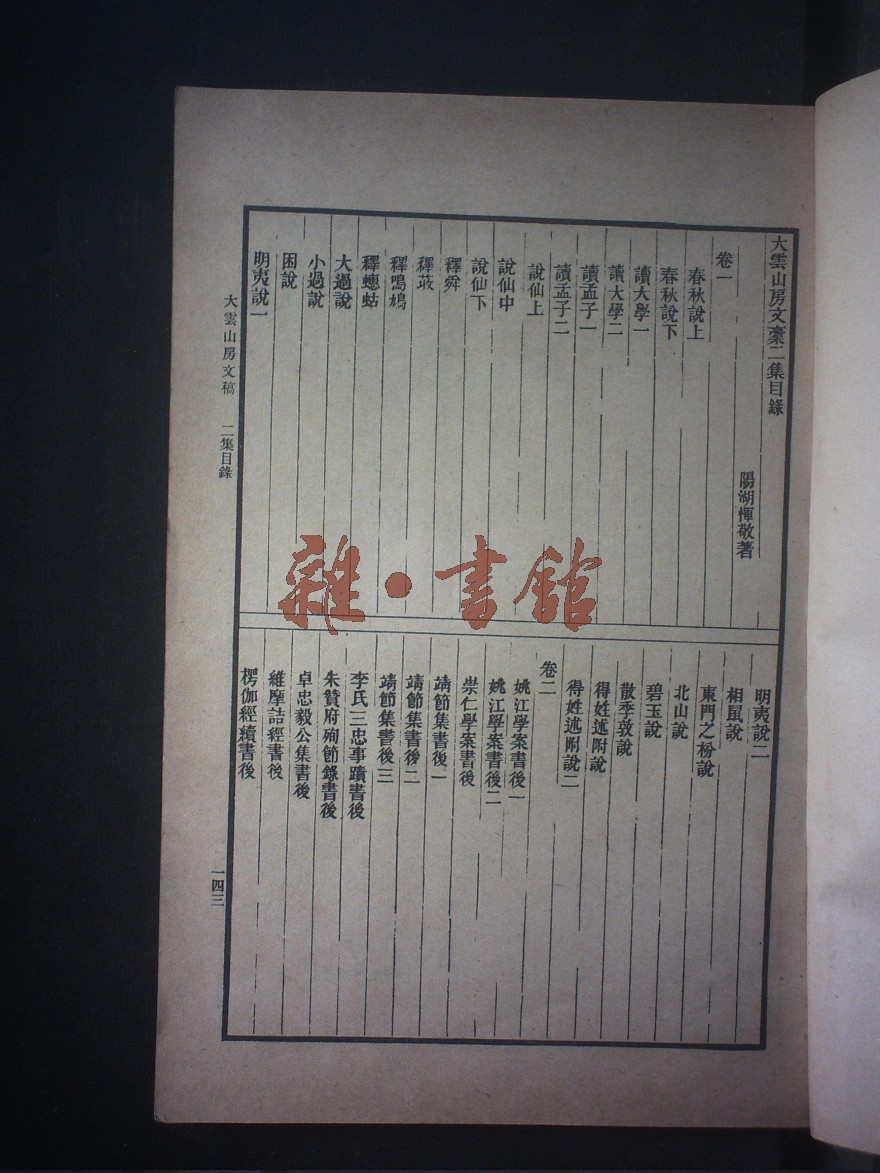 大雲山房文稾二集目錄
陽湖惲敬著
卷一
春秋說上
春秋說下
讀大學一
讀大學二
讀孟子一
讀孟子二
說仙上
說仙中
說仙下
釋舜
釋鳲鳩
釋蟪蛄
大過說
小過說
困說
明夷說一
明夷說二
相鼠說
東門之枌說
北山說
碧玉說
散季敦說
得姓述附說
得姓述附說二
卷二
姚江學案書後一
姚江學案書後二
崇仁學案書後
靖節集書後一
靖節集書後二
靖節集書後三
李氏三忠事蹟書後
朱贊府殉節錄書後
卓忠毅公集書後
維摩詰經書後
楞伽經續書後
大雲山房文稿 二集目錄
一四三
雜·書館